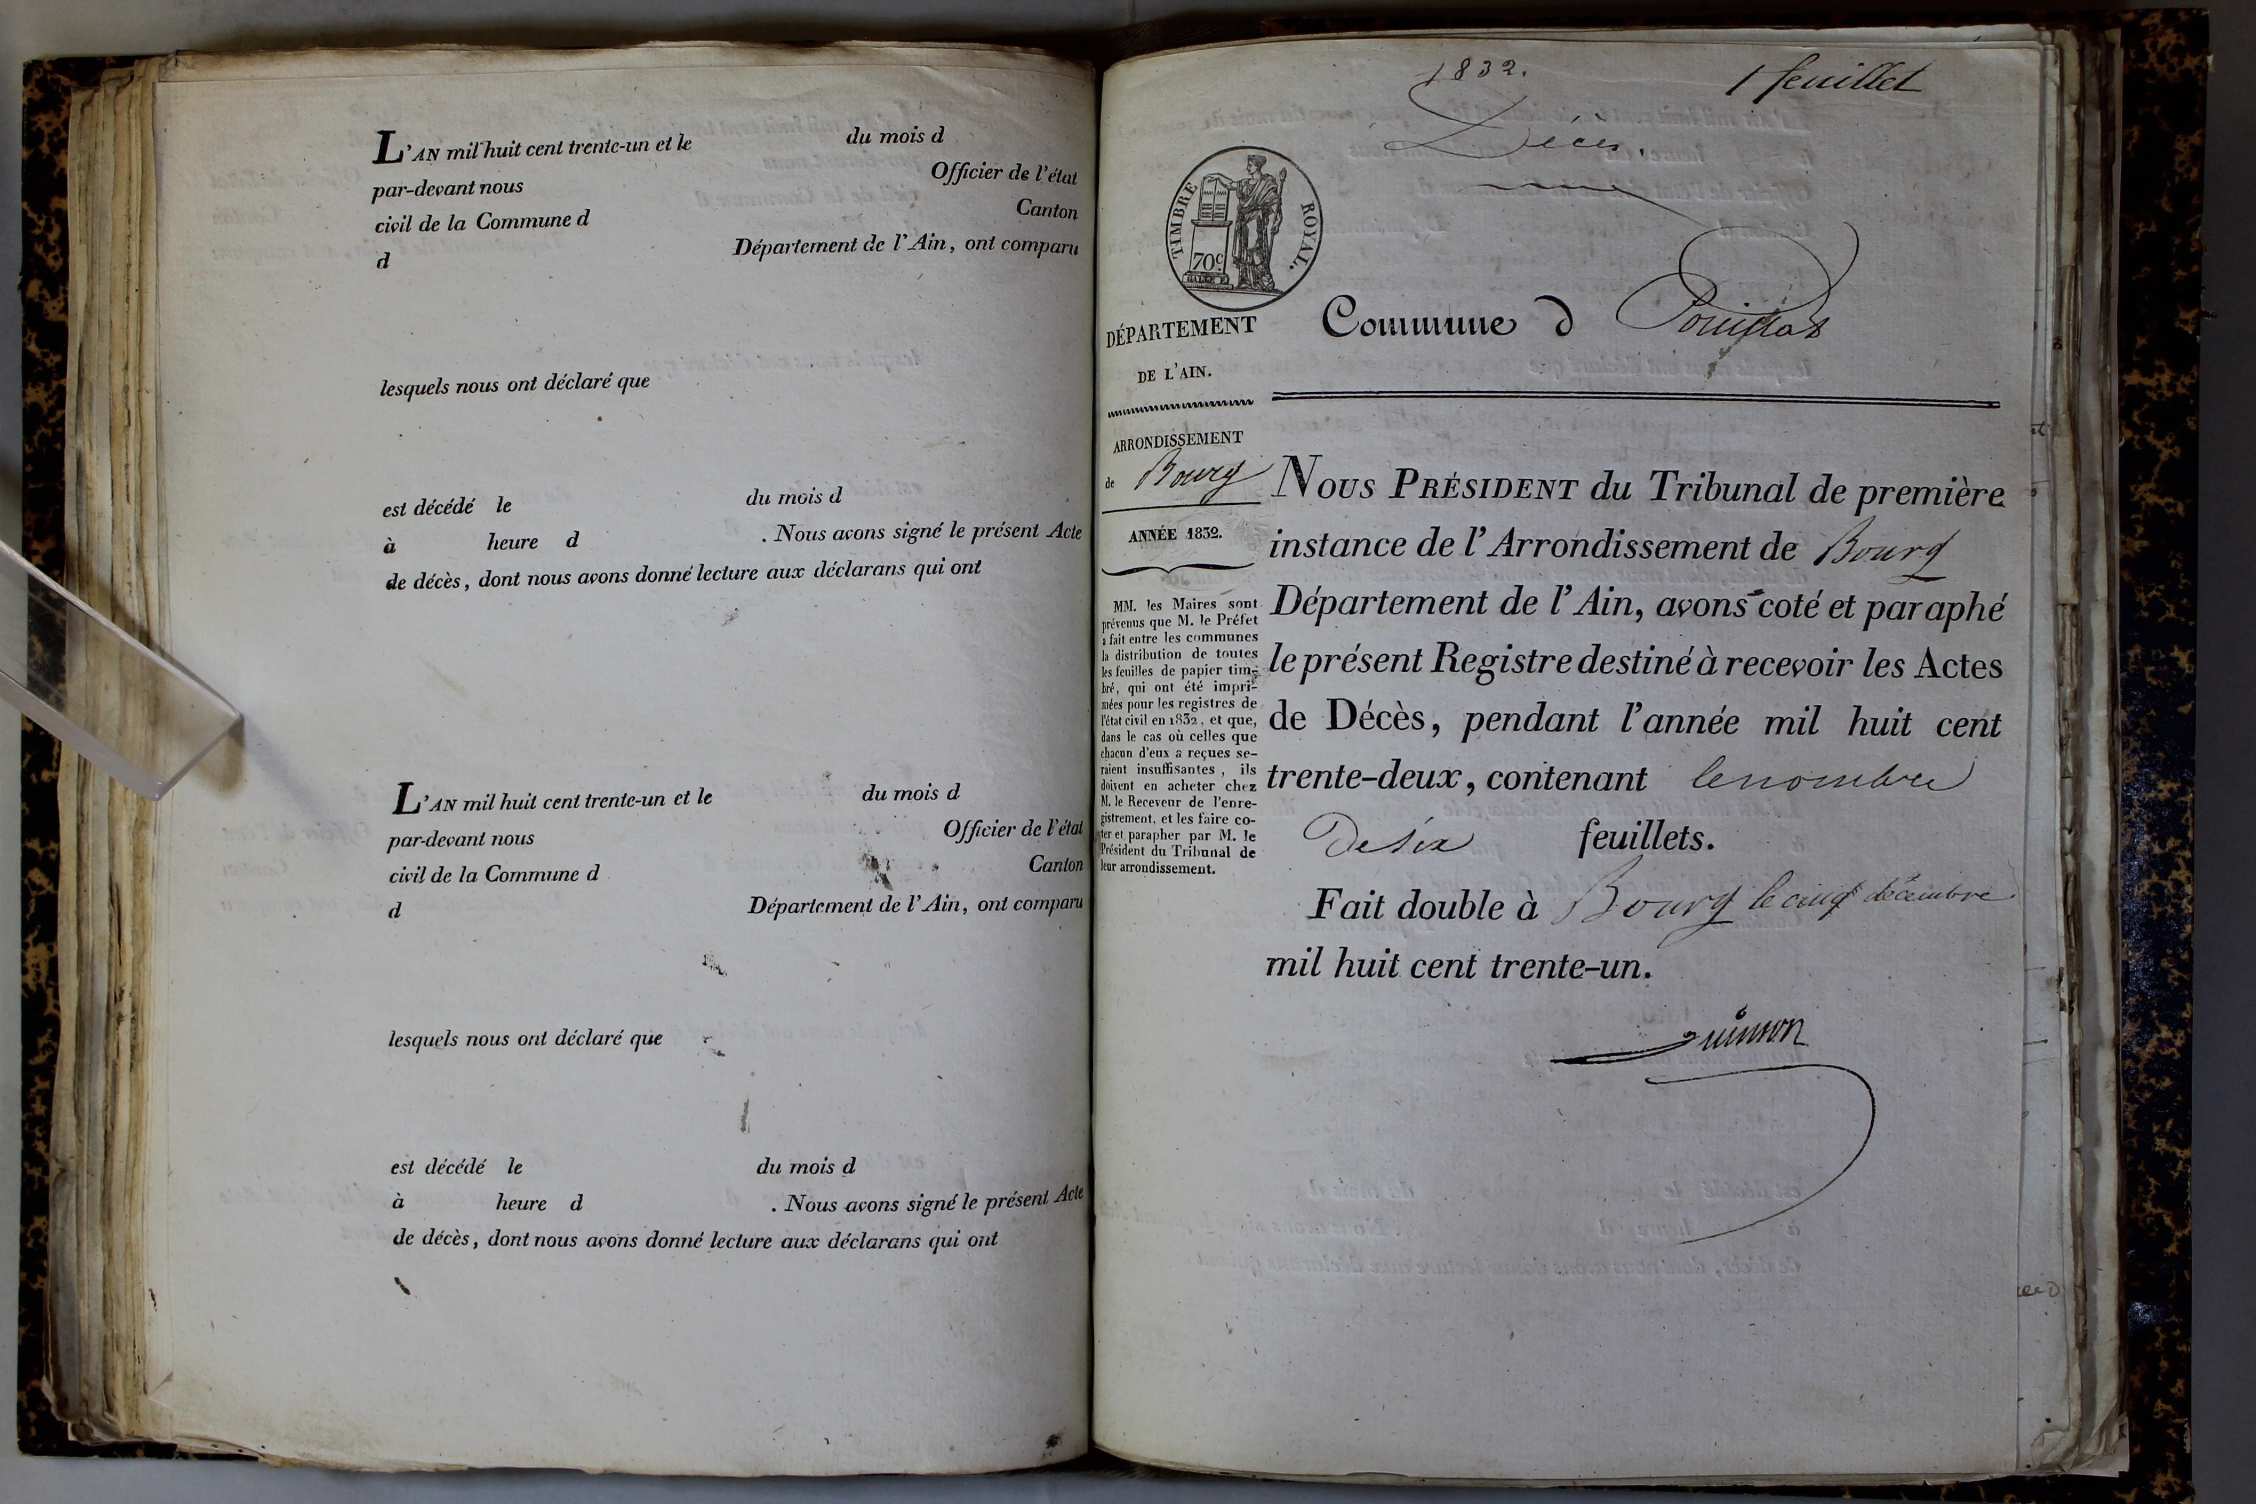 L'AN mil huit cent trente-un et le du mois d
par-devant nous Officier de l'état
civil de la Commune d Canton
d Département de l'Ain, ont comparu
lesquels nous ont déclaré que
est décédé le du mois d
à heure d . Nous avons signé le présent Acte
de décès, dont nous avons donné lecture aux déclarans qui ont
L'AN mil huit cent trente-un et le du mois d
par-devant nous Officier de l'état
civil de la Commune d Canton
d Département de l'Ain, ont comparu
lesquels nous ont déclaré que
est décédé le du mois d
à heure d . Nous avons signé le présent Acte
de décès, dont nous avons donné lecture aux déclarans qui ont
1832.
1 feuillet
Décès.
TIMBRE ROYAL.
70c.
Commune d Pouillat
DÉPARTEMENT
DE L'AIN.
ARRONDISSEMENT
de Bourg
ANNÉE 1832.
MM. les Maires sont
prévenus que M. le Préfet
a fait entre les communes
la distribution de toutes
les feuilles de papier tim-
bré, qui ont été impri-
mées pour les registres de
l'état civil en 1832, et que,
dans le cas où celles que
chacun d'eux a reçues se-
raient insuffisantes, ils
doivent en acheter chez
M. le Receveur de l'enre-
gistrement, et les faire co-
ter et parapher par M. le
Président du Tribunal de
leur arrondissement.
NOUS PRÉSIDENT du Tribunal de première
instance de l'Arrondissement de Bourg
Département de l'Ain, avons coté et paraphé
le présent Registre destiné à recevoir les Actes
de Décès, pendant l'année mil huit cent
trente-deux, contenant le nombre
de six feuillets.
Fait double à Bourg le cinq décembre
mil huit cent trente-un.